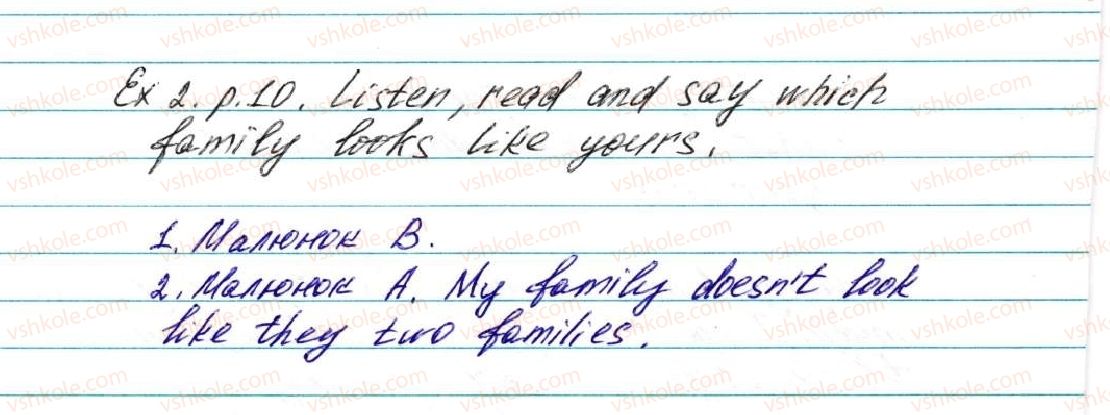 Ex 2. p.10. Listen, read and say which
family looks like yours.
1. Малюнок B.
2. Малюнок A. My family doesn't look
like they two families.